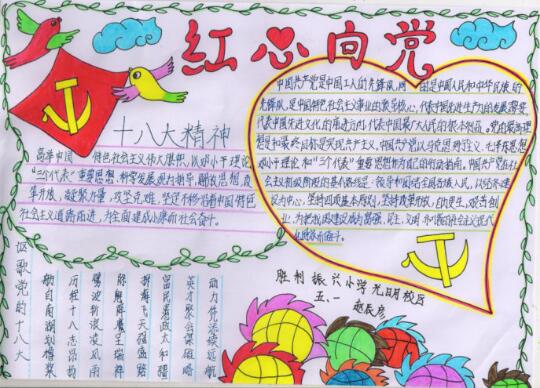 红心向党
十八大精神
高举中国 特色社会主义伟大旗帜,以邓小平理论
“三个代表”重要思想,科学发展观为指导,解放思想,改
革开放,凝聚力量,攻坚克难,坚定不移沿着中国特色
社会主义道路前进,为全面建成小康社会奋斗。
中国共产党是中国工人的先锋队,同 是中国人民和中华民族的
先锋队,是中国特色社会主义事业的领导核心,代表中国先进生产力的发展要求
代表中国先进文化的前进方向,代表中国最广大人民的根本利益。党的最高理
想和最终目标是实现共产主义。中国共产党以马克思列宁主义、毛泽东思想
邓小平理论、和“三个代表”重要思想作为自己的行动指南。中国共产党在社
会主义初级阶段的基本路线是:领导和团结全国各族人民,以经济建
设为中心,坚持四项基本原则,坚持改革开放,自力更生,艰苦创
业,为把我国建设成为富强、民主、文明、和谐的社会主义现代
化国家而奋斗。
讴歌党的十八大
自南湖划桨
历程十八志昂扬
劈波斩浪凌风雨
降魔呈瑞祥
飞天强盛路
富民清政太和疆
英才聚会谋雄略
助力伟业续远航
胜利振兴小学尤旧校区
五、一 赵辰彦